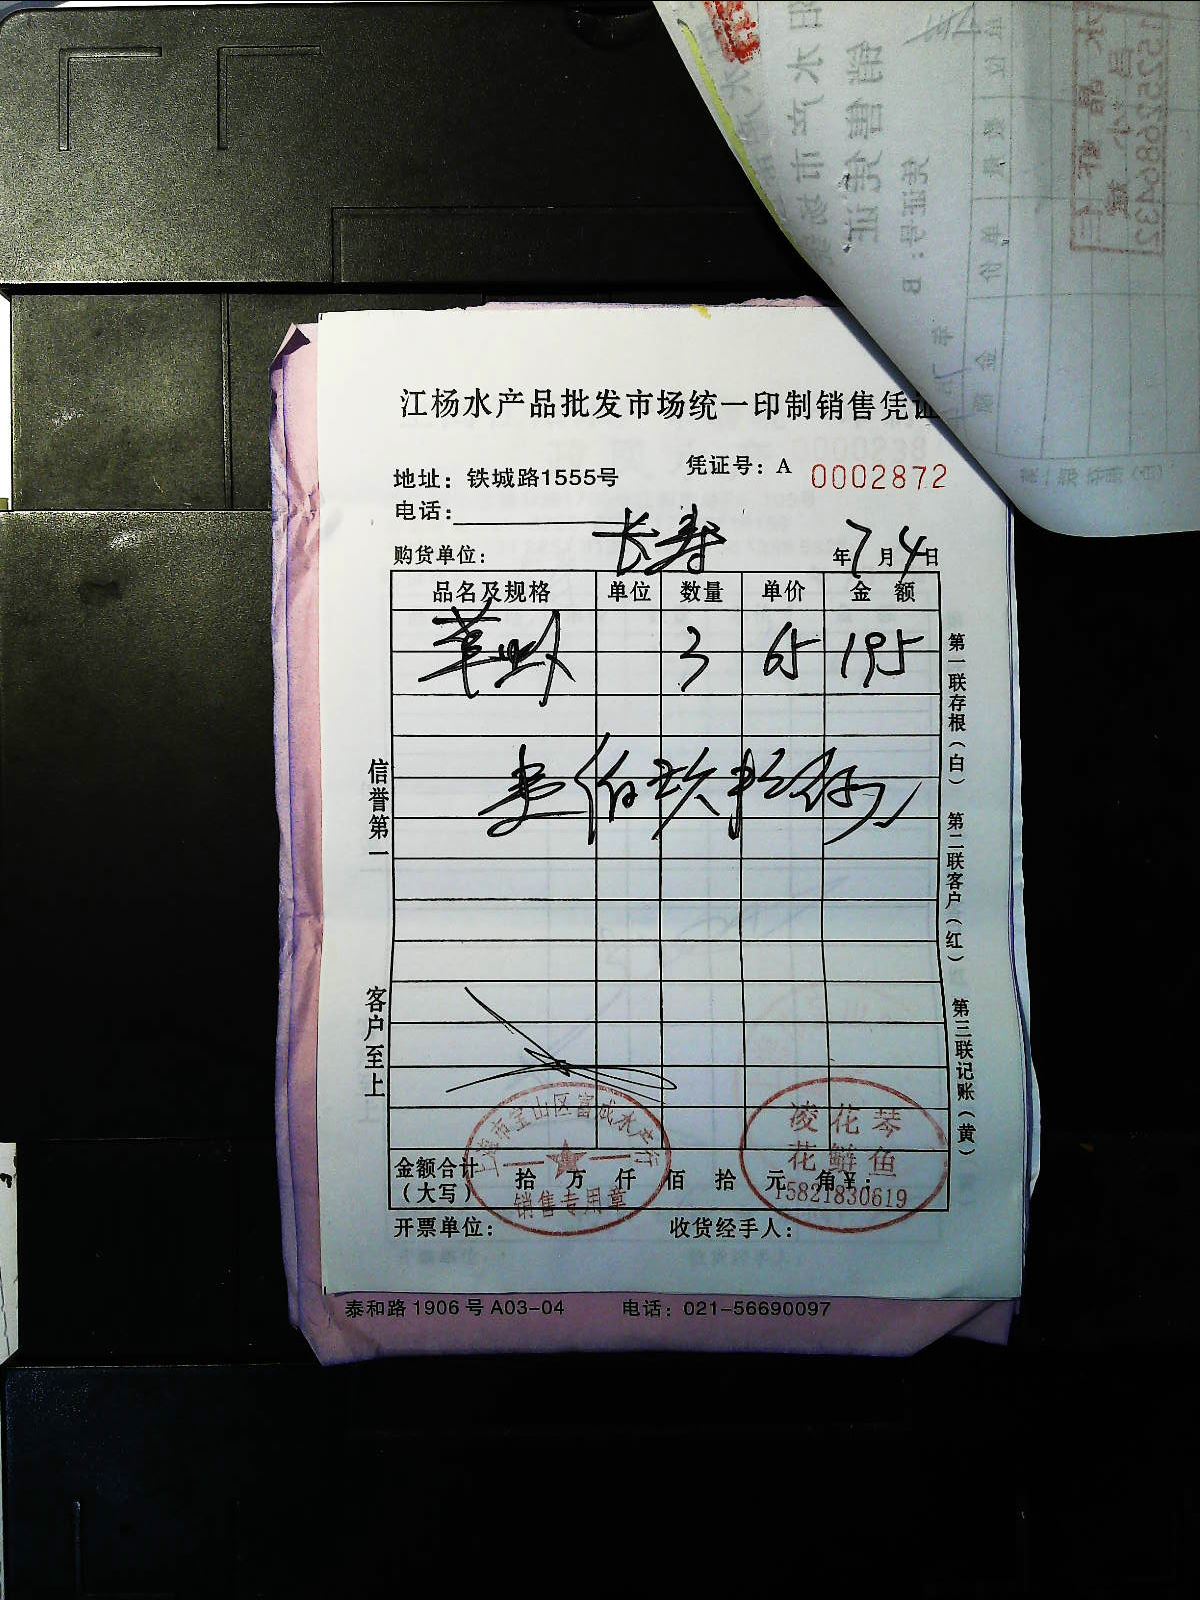 江杨水产品批发市场统一印制销售凭证
凭证号：A 0002872
地址：铁城路1555号
电话：
购货单位： 长寿 年 7 月 4 日
品名及规格 单位 数量 单价 金 额
草虾 3 65 195
壹佰玖拾伍元
信誉第一
客户至上
第一联存根（白）
第二联客户（红）
第三联记账（黄）
上海市宝山区富成水产行
销售专用章
凌花琴
花鲢鱼
15821830619
金额合计（大写） 拾 万 仟 佰 拾 元 角 ¥：
开票单位： 收货经手人：
泰和路1906号A03-04 电话：021-56690097